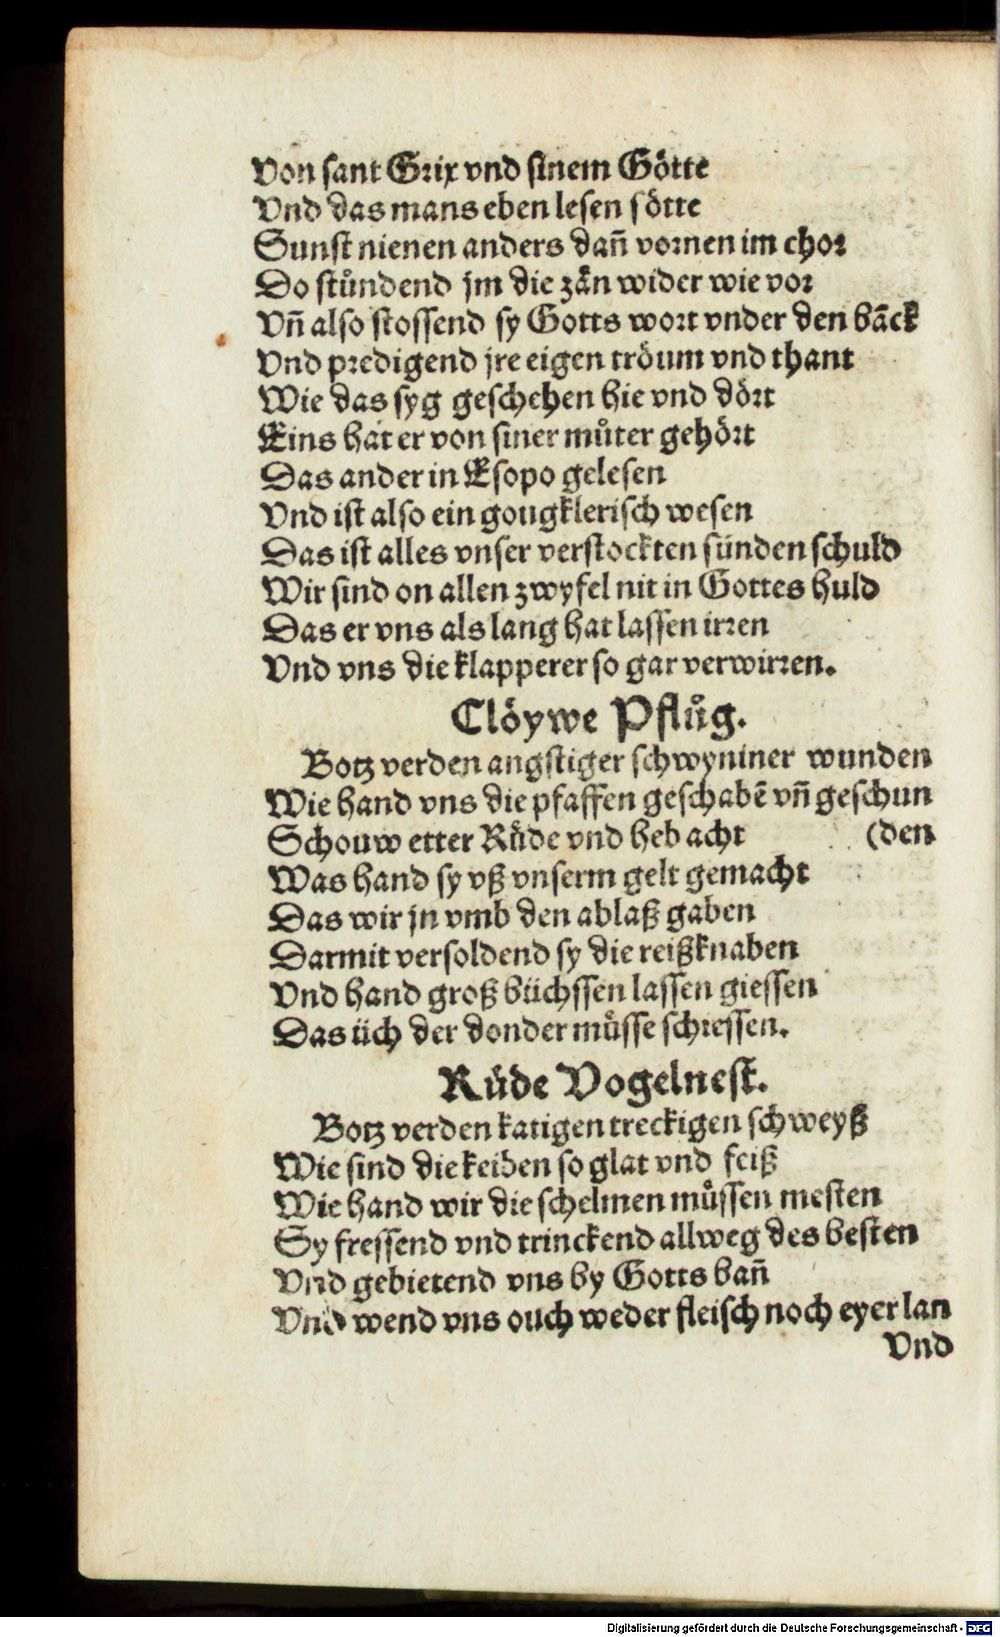 Von sant Grix vnd sinem Götte
Vnd das mans eben lesen sötte
Sunst nienen anders dañ vornen im chor
Do stůndend jm die zän wider wie vor
Vñ also stossend sy Gotts wort vnder den bãck
Vnd predigend jre eigen tröum vnd thant
Wie das syg geschehen hie vnd dört
Eins hat er von siner můter gehört
Das ander in Esopo gelesen
Vnd ist also ein gougklerisch wesen
Das ist alles vnser verstockten sünden schuld
Wir sind on allen zwyfel nit in Gottes huld
Das er vns als lang hat lassen irren
Vnd vns die klapperer so gar verwirren.
Clöywe Pflůg.
Botz verden angstiger schwyniner wunden
Wie hand vns die pfaffen geschabẽ vñ geschun
Schouw etter Rüde vnd heb acht (den
Was hand sy vß vnserm gelt gemacht
Das wir jn vmb den ablaß gaben
Darmit versoldend sy die reißknaben
Vnd hand groß büchssen lassen giessen
Das üch der donder müsse schiessen.
Rüde Vogelnest.
Botz verden katigen treckigen schweyß
Wie sind die keiben so glat vnd feiß
Wie hand wir die schelmen müssen mesten
Sy fressend vnd trinckend allweg des besten
Vnd gebietend vns by Gotts bañ
Vnd wend vns ouch weder fleisch noch eyer lan
Vnd
Digitalisierung gefördert durch die Deutsche Forschungsgemeinschaft - DFG